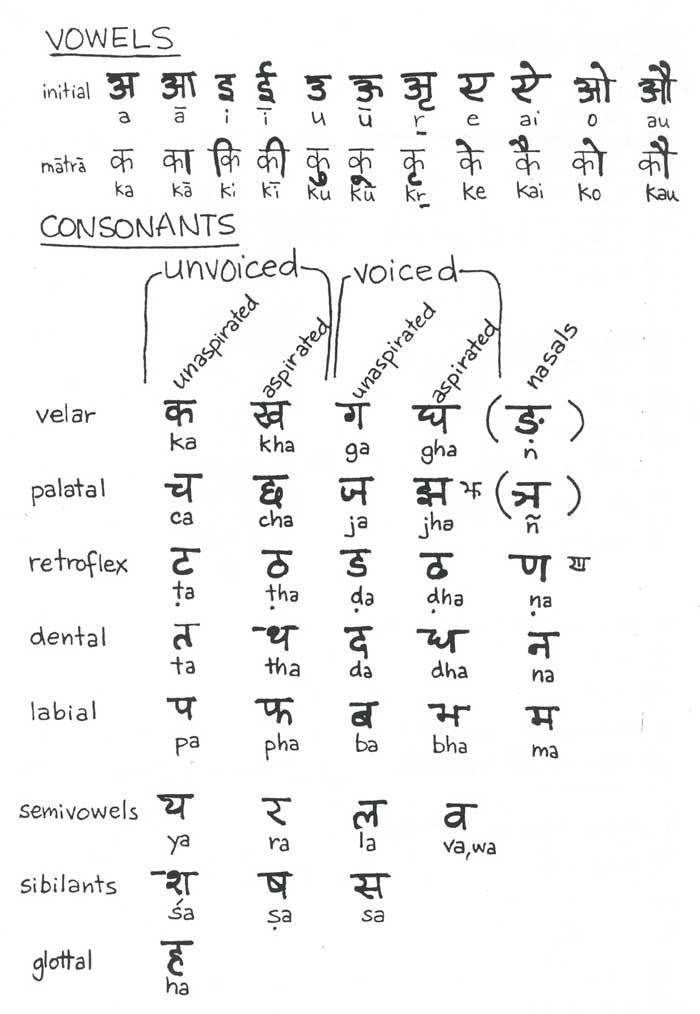 VOWELS
initial अ आ इ ई उ ऊ ऋ ए ऐ ओ औ
a ā i ī u ū r̲ e ai o au
mātrā क का कि की कु कू कृ के कै को कौ
ka kā ki kī ku kū kr̲ ke kai ko kau
CONSONANTS
unvoiced voiced
unaspirated aspirated unaspirated aspirated nasals
velar क ख ग घ (ङ)
ka kha ga gha ṇ
palatal च छ ज झ झ (ञ)
ca cha ja jha ñ
retroflex ट ठ ड ढ ण ण
ṭa ṭha ḍa ḍha ṇa
dental त थ द ध न
ta tha da dha na
labial प फ ब भ म
pa pha ba bha ma
semivowels य र ल व
ya ra la va,wa
sibilants श ष स
śa ṣa sa
glottal ह
ha